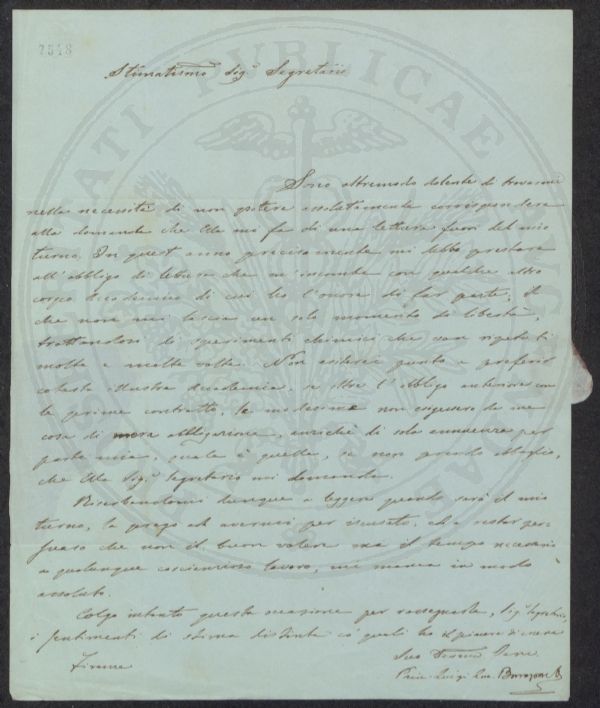 7548
Stimatissimo Sig.r Segretario
Sono oltremodo dolente di trovarmi
nella necessità di non potere assolutamente corrispondere
alla domanda che Ella mi fa di una lettura fuori del mio
turno. In quest'anno precisamente mi debbo prestare
all'obbligo di lettura che m'incombe con qualche altro
corpo Accademico di cui ho l'onore di far parte, il
che non mi lascia un solo momento di libertà,
trattandosi di sperimenti chimici che van ripetuti
molte e molte volte. Non esiterei punto a preferire
cotesta illustre Accademia, se oltre l'obbligo anteriore con
la prima contratto, le medesime non esigessero da me
cosa di mera obbligazione, anziché di sola annuenza per
parte mia, quale è quella, se non prendo sbaglio,
che Ella Sig.r Segretario mi domanda.
Riserbandomi dunque a leggere quando sarà il mio
turno, la prego ad avermi per iscusato, ed a restar per-
suaso che non il buon volere ma il tempo necessario
a qualunque coscienzioso lavoro, mi manca in modo
assoluto.
Colgo intanto questa occasione per rassegnarle, Sig.r Segretario,
i sentimenti di stima distinta co' quali ho il piacere di essere
Firenze
Suo Servo
Luigi